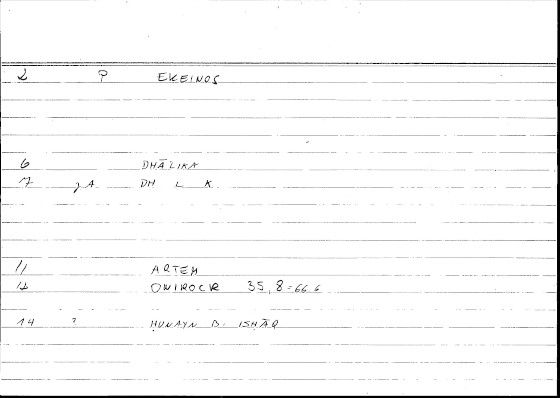 2 P EKEINOS
6 DHĀLIKA
7 A DH L K
11 ARTEM
12 ONIROCR 35, 8 = 66 6
14 ? ḤUNAYN B. ISḤĀQ